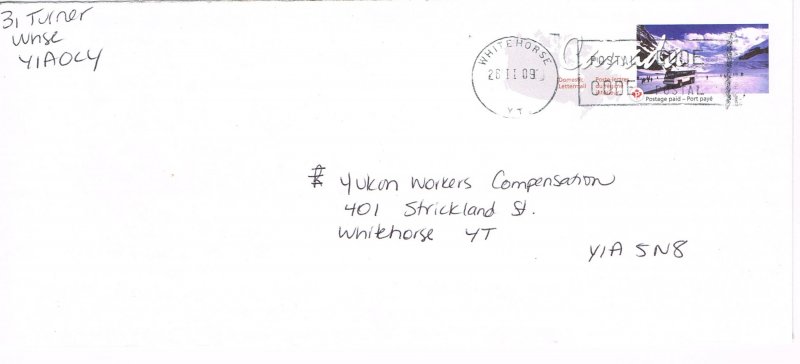 31 Turner
Whse
Y1A0C4
WHITEHORSE
28 II 09
YT
POSTAL CODE
CODE POSTAL
Domestic Lettermail
Poste-lettres
Postage paid – Port payé
Yukon Workers Compensation
401 Strickland St.
Whitehorse YT
Y1A 5N8